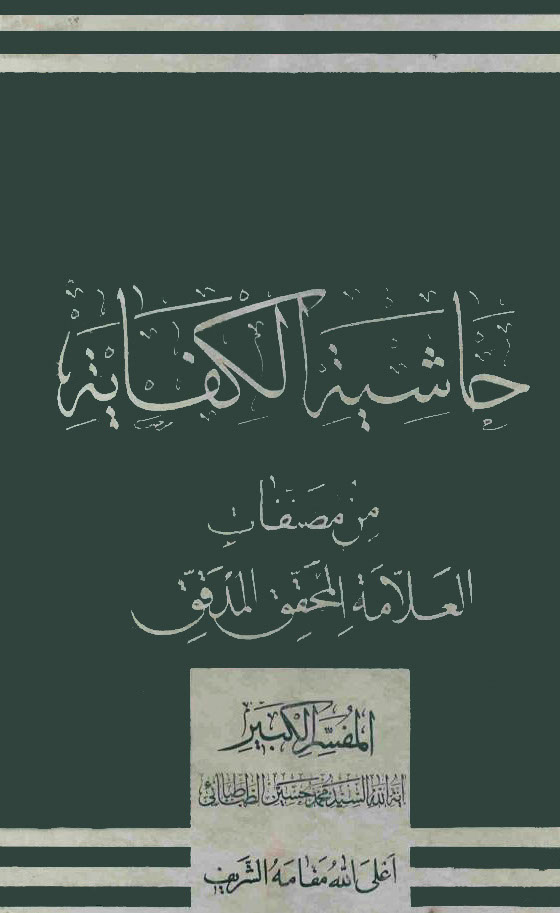 حاشية الكفاية
من مصنفات
العلّامة المحقق المدقّق
المفسّر الكبير
آية الله السيد محمد حسين الطباطبائي
أعلى الله مقامه الشريف